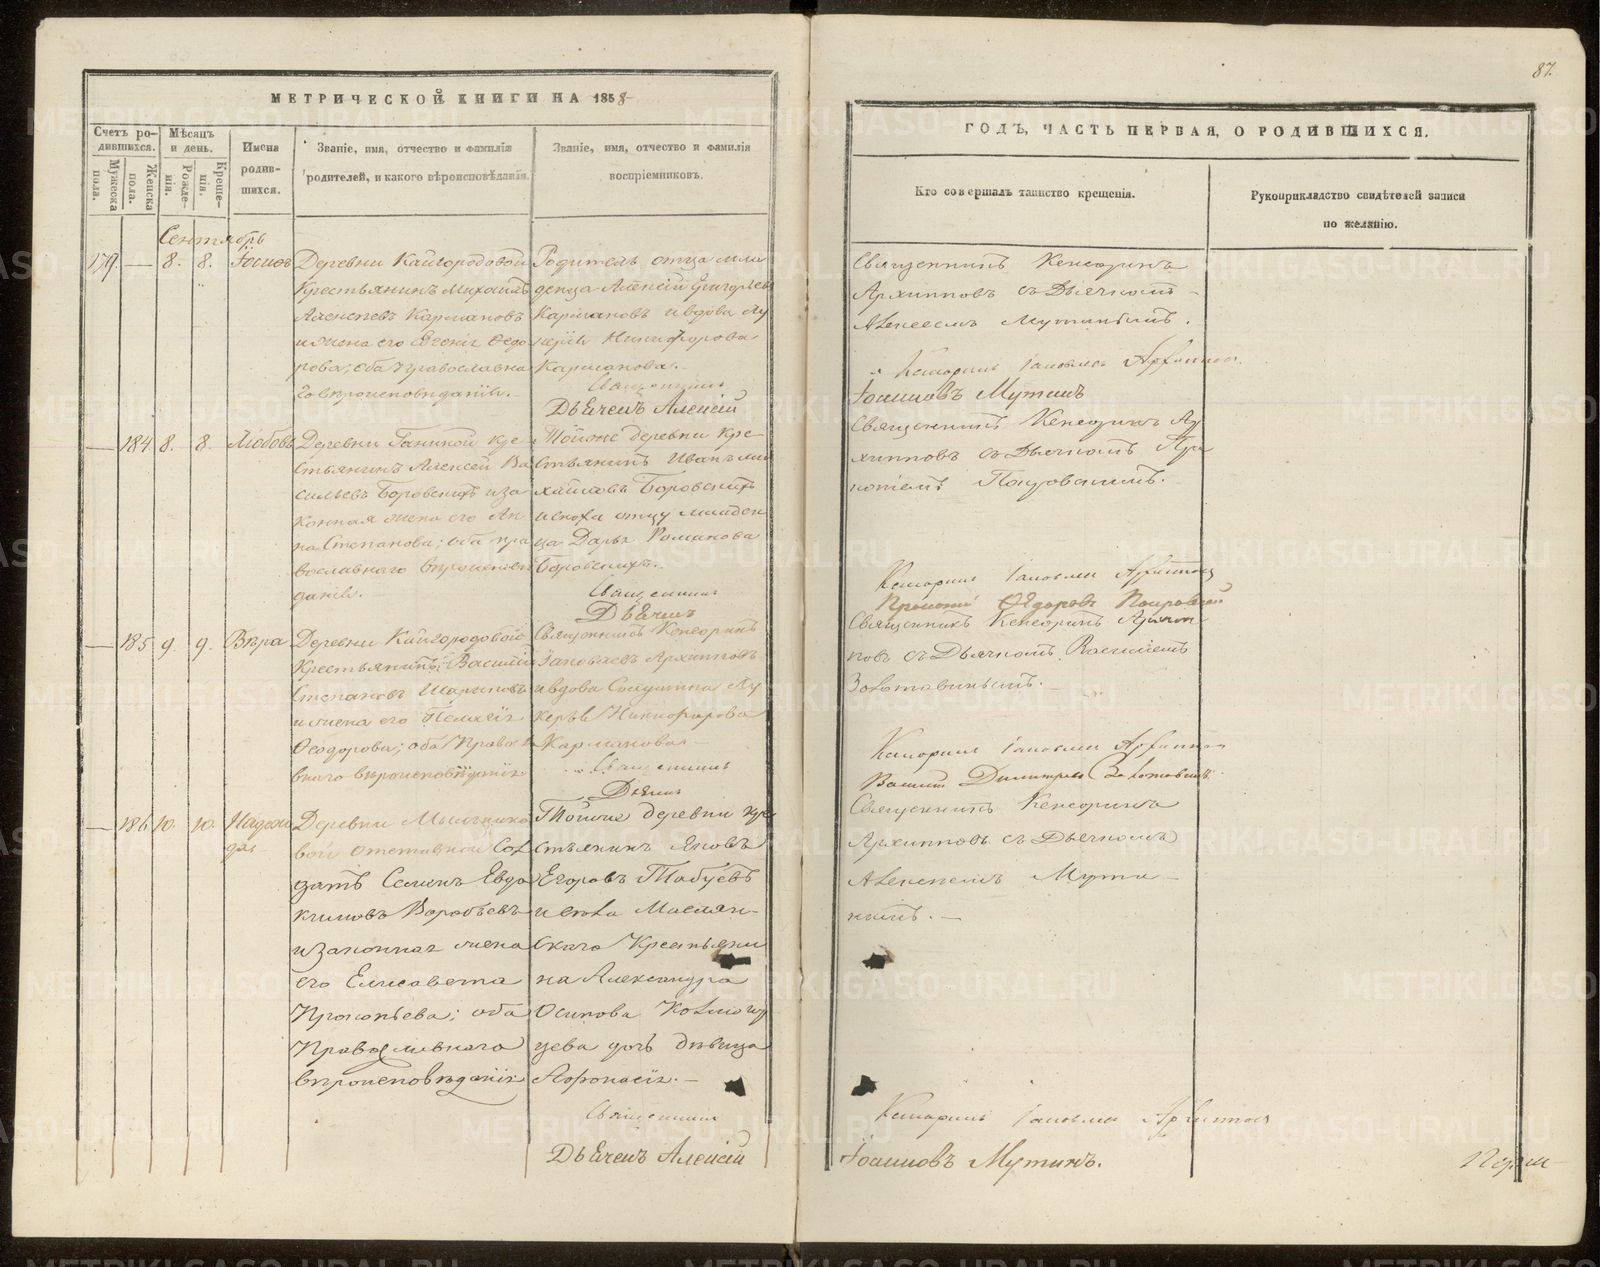 87.
МЕТРИЧЕСКОЙ КНИГИ НА 1858
ГОДЪ, ЧАСТЬ ПЕРВАЯ, О РОДИВШИХСЯ.
Счетъ ро-
дившихся.
Мужеска
пола.
Женска
пола.
Мѣсяцъ
и день.
Рожде-
нія.
Креще-
нія.
Имена
родив-
шихся.
Званіе, имя, отчество и фамилія
родителей, и какого вѣроисповѣданія.
Званіе, имя, отчество и фамилія
воспріемниковъ.
Кто совершалъ таинство крещенія.
Рукоприкладство свидѣтелей записи
по желанію.
Сентябрь
179. — 8. 8. Іосифъ
Деревни Кайгородовой
Крестьянинъ Михаилъ
Алексѣевъ Кармановъ
и жена его Евгенія Ѳедо
рова; оба православна
го вѣроисповѣданія.
Родитель отца мла
денца Алексѣй Григорьевъ
Кармановъ и вдова Лу
керія Никифорова
Карманова.
Священникъ
Дьячекъ Алексій
Священникъ Кенсоринъ
Архипповъ съ Дьячкомъ
Алексеемъ Мутинымъ.
Кенсоринъ Іаковлевъ Архипповъ
Іоанновъ Мутинъ
— 184 8. 8. Любовь
Деревни Ганиной кре
стьянинъ Алексей Ва
сильевъ Боровскихъ и за
конная жена его Ан
на Степанова; оба пра
вославнаго вѣроисповѣ
данія.
Тойже деревни кре
стьянинъ Иванъ Ми
хайловъ Боровскихъ
и сноха отцу младен
ца Дарья Романова
Боровскихъ.
Священникъ
Дьячекъ
Священникъ Кенсоринъ Ар
хипповъ съ Дьячкомъ Про
копіемъ Покровскимъ.
Кенсоринъ Іаковлевъ Архипповъ
Прокопій Ѳедоровъ Покровскій
— 185 9. 9. Вѣра
Деревни Кайгородовой
Крестьянинъ Василій
Степановъ Шарыповъ
и жена его Пелагія
Ѳеодорова; оба Православ
наго вѣроисповѣданія
Священникъ Кенсоринъ
Іаковлевъ Архипповъ
и вдова Лу
керья Никифорова
Карманова —
Священникъ
Дьячекъ
Священникъ Кенсоринъ Архип
повъ съ Дьячкомъ Василіемъ
Золотавинымъ. —
Кенсоринъ Іаковлевъ Архипповъ
Василій Димитріевъ Золотавинъ
— 186 10. 10. Надеж
да
вой отставной Сол
датъ Семенъ Евдо
кимовъ Воробьевъ
и законная жена
его Елисавета
Прокопьева; оба
Православнаго
вѣроисповѣданія
Тойже деревни кре
стьянинъ Яковъ
Егоровъ
скаго Крестьяни
на Александра
Осипова Колмогор
цева дочь дѣвица
Афонасія. —
Священникъ
Дьячекъ Алексій
Священникъ Кенсоринъ
Архипповъ съ Дьячкомъ
Алексеемъ Мути-
нымъ. —
Кенсоринъ Іаковлевъ Архипповъ
Іоанновъ Мутинъ.
METRIKI.GASO-URAL.RU